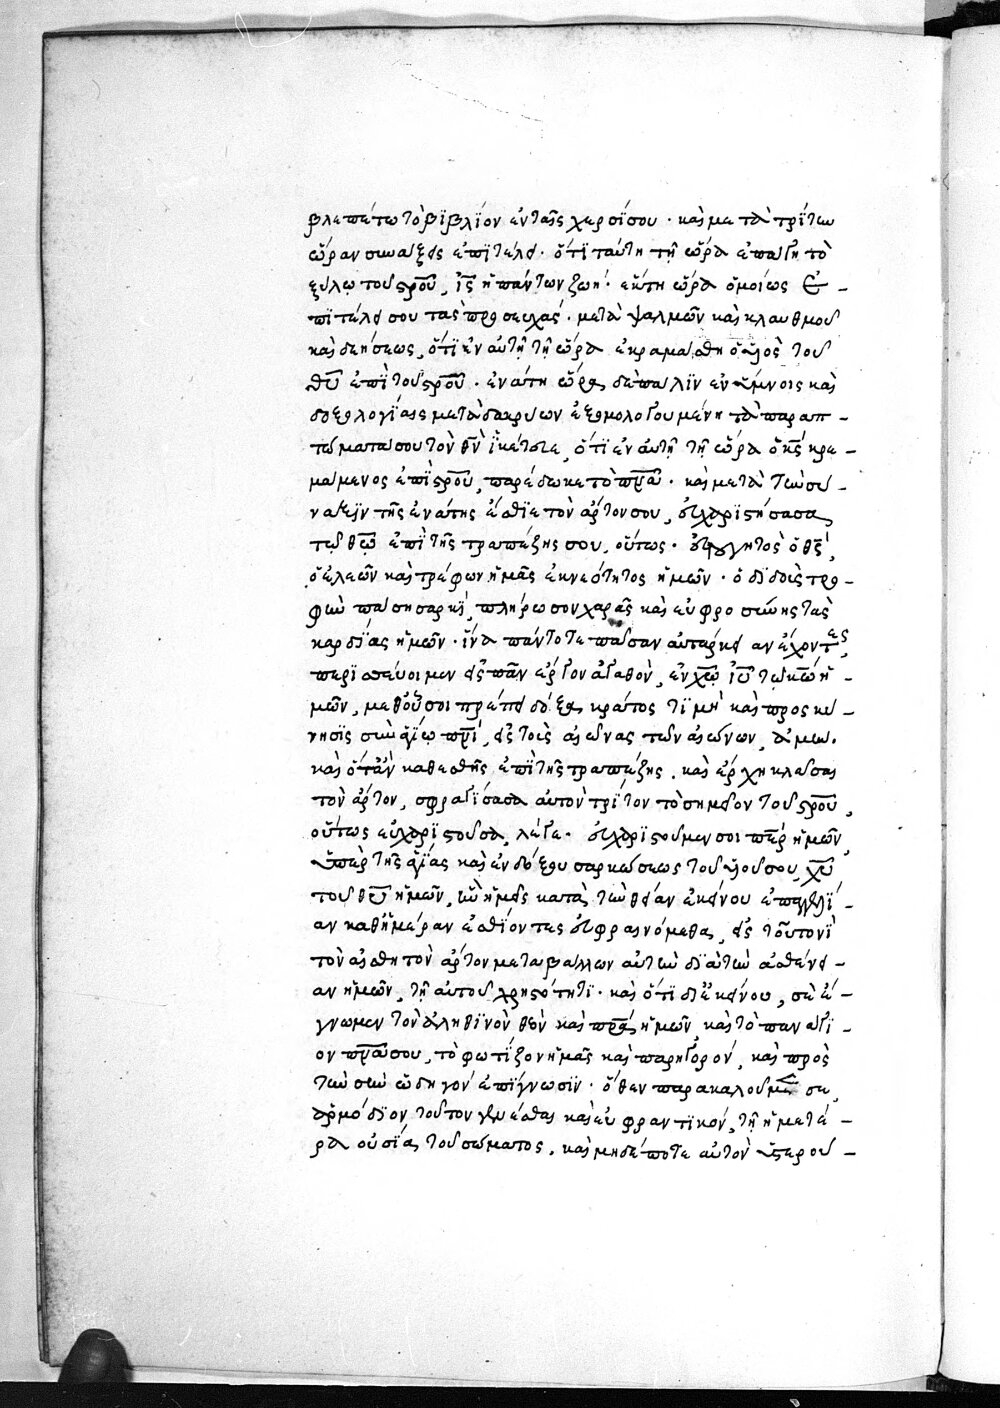 βλεπέτω τὸ βιβλίον ἐν ταῖς χερσί σου · καὶ μετὰ τρίτην
ὥραν συνάξεις ἐπιτέλει · ὅτι ταύτη τῆ ὥρα ἐπάγη τὸ
ξύλω τοῦ σ̅ρ̅ο̅ῦ, ι̅ς̅ ἡ πάντων ζωή · ἕκτη ὥρα ὁμοίως ἐ -
πιτέλει σου τὰς προσευχάς · μετὰ ψαλμῶν καὶ κλαυθμοῦ
καὶ δεήσεως, ὅτι ἐν αὐτῆ τῆ ὥρα ἐκρεμάσθη ὁ υἱὸς τοῦ
θ̅υ̅ ἐπὶ τοῦ σ̅ρ̅ο̅ῦ · ἐνάτη ὥρα δὲ πάλιν ἐν ὕμνοις καὶ
δοξολογίαις μετὰ δακρύων ἐξομολογουμένη τὰ παραπ -
τώματά σου τὸν θ̅ν̅ ἱκέτευε, ὅτι ἐν αὐτῆ τῆ ὥρα ὁ κ̅ς̅ κρε -
μάμενος ἐπὶ σ̅ρ̅ο̅ῦ, παρέδωκε τὸ π̅ν̅α̅ · καὶ μετὰ τὴν σύ -
ναξιν τῆς ἐνάτης ἔσθιε τὸν ἄρτον σου, εὐχαριστήσασα
τῷ θ̅ω̅ ἐπὶ τῆς τραπέζης σου, οὕτως · εὐλογητὸς ὁ θ̅ς̅,
ὁ ἐλεῶν καὶ τρέφων ἡμᾶς ἐκ νεότητος ἡμῶν · ὁ διδοὺς τρο -
φὴν πάση σαρκί, πλήρωσον χαρᾶς καὶ εὐφροσύνης τὰς
καρδίας ἡμῶν · ἵνα πάντοτε πᾶσαν αὐτάρκειαν ἔχοντες,
περισσεύοιμεν εἰς πᾶν ἔργον ἀγαθὸν, ἐν χ̅ω̅ ι̅υ̅ τῷ κ̅ω̅ ἡ -
μῶν, μεθ' οὗ σοι πρέπει δόξα κράτος τιμὴ καὶ προσκύ -
νησις σὺν ἁγίῳ π̅ν̅ι̅, εἰς τοὺς αἰῶνας τῶν αἰώνων, ἀμήν.
καὶ ὅταν καθεσθῆς ἐπὶ τῆς τραπέζης, καὶ ἔρχη κλάσαι
τὸν ἄρτον, σφραγίσασα αὐτὸν τρίτον τὸ σημεῖον τοῦ σ̅ρ̅ο̅ῦ,
οὕτως εὐχαριστοῦσα, λέγε · εὐχαριστοῦμεν σοι π̅ε̅ρ̅ ἡμῶν,
ὑπὲρ τῆς ἁγίας καὶ ἐνδόξου σαρκώσεως τοῦ υἱοῦ σου, χ̅υ̅
τοῦ θ̅υ̅ ἡμῶν, ἡμεῖς κατὰ τὴν θείαν ἐκείνου ἐπαγγελί -
αν καθ' ἡμέραν ἐσθίοντες εὐφραινόμεθα, εἰς τοῦτονὶ
τὸν αἰσθητὸν ἄρτον μεταβάλλων αὐτὴν διὰ τὴν ἀσθένει -
αν ἡμῶν, τῆ αὐτοῦ χρηστότητι · καὶ ὅτι δι' ἐκείνου, σὲ ἔ -
γνωμεν τὸν ἀληθινὸν θεὸν καὶ π̅ρ̅α̅ ἡμῶν καὶ τὸ πανάγι -
ον π̅ν̅α̅ σου, τὸ φωτίζον ἡμᾶς καὶ παρηγοροῦν, καὶ πρὸς
τὴν σὴν ὁδηγοῦν ἐπίγνωσιν · ὅθεν παρακαλοῦμέν σε,
ἁρμόδιον τοῦτον γενέσθαι καὶ εὐφραντικὸν, τῆ ἡμετέ -
ρα οὐσία τοῦ σώματος, καὶ μηδέποτε αὐτὸν ὑστεροῦ -